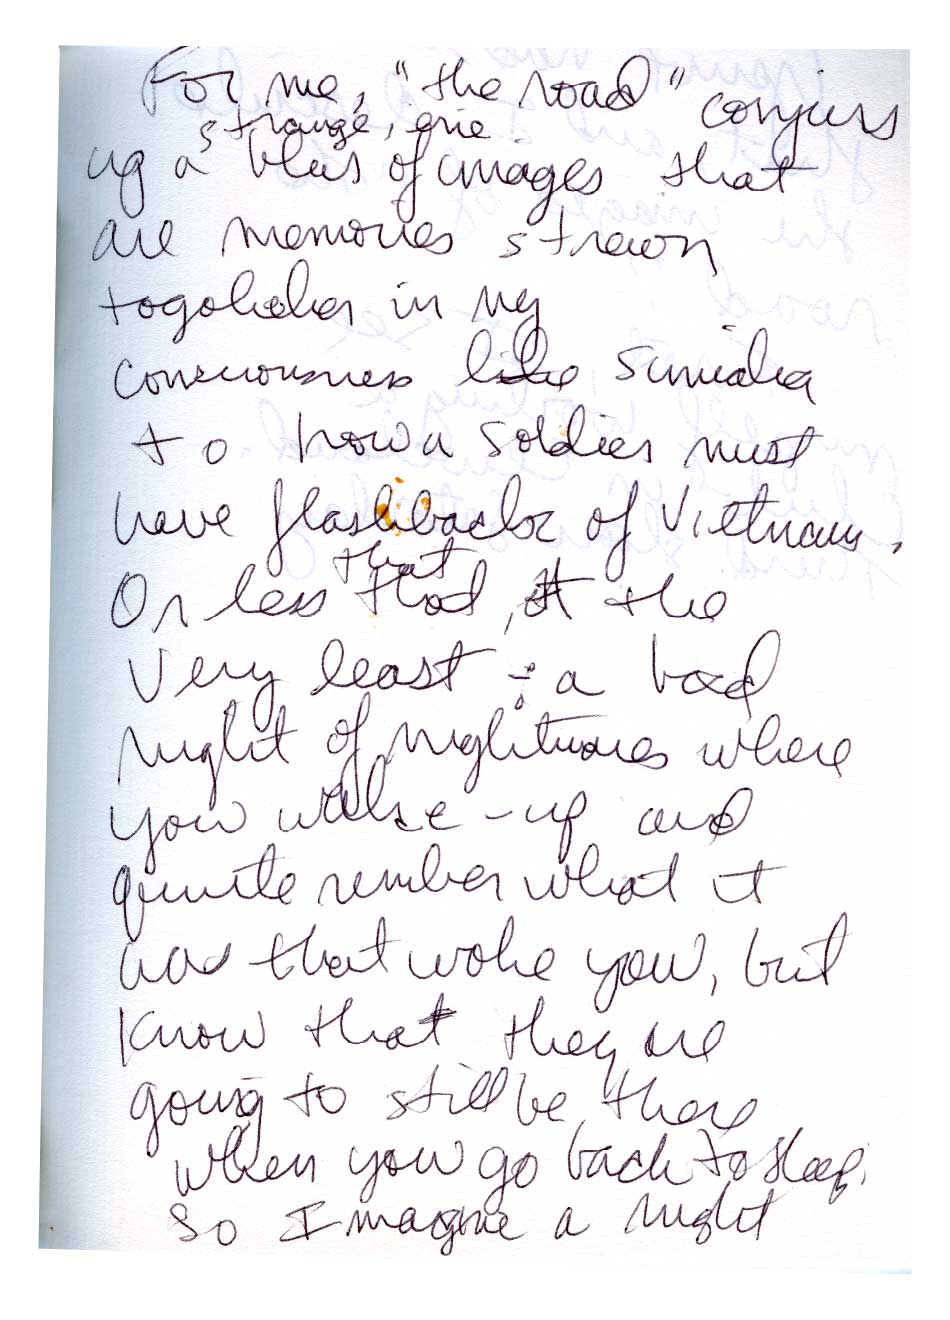 For me, "the road" conjurs
strange, erie
up a blur of images that
are memories strewn
together in my
consciousness like similar
to how a soldier must
have flashbacks of Vietnam.
that
Or less that, at the
very least - a bad
night of nightmares where
you wake-up and
quite rember what it
was that woke you, but
know that they are
going to still be there
when you go back to sleep.
So Imagine a night